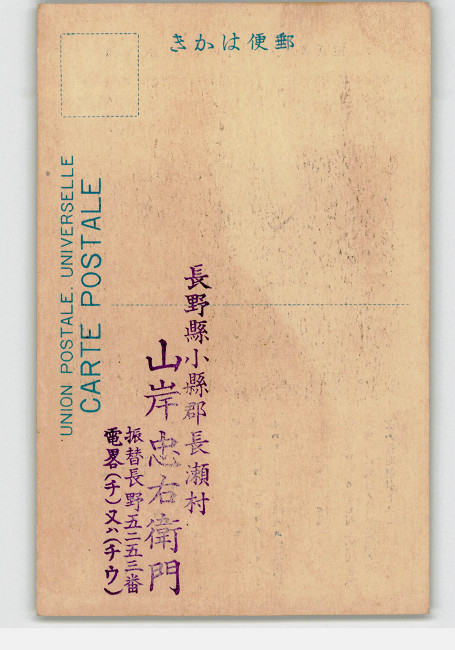 きかは便郵
UNION POSTALE. UNIVERSELLE
CARTE POSTALE
長野縣小縣郡長瀬村
山岸忠右衛門
振替長野五二五三番
電畧(チ)又ハ(チウ)